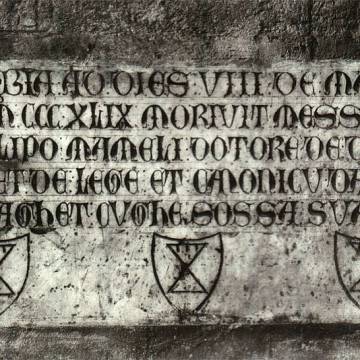 BIA AD DIES VIII DE MA
CCCXLIX MORIVIT MESS
LIPO MAMELI DOTORE DE D
ET DE LEGE ET CANONICU DA
ET CUGHE SOSSA SUA